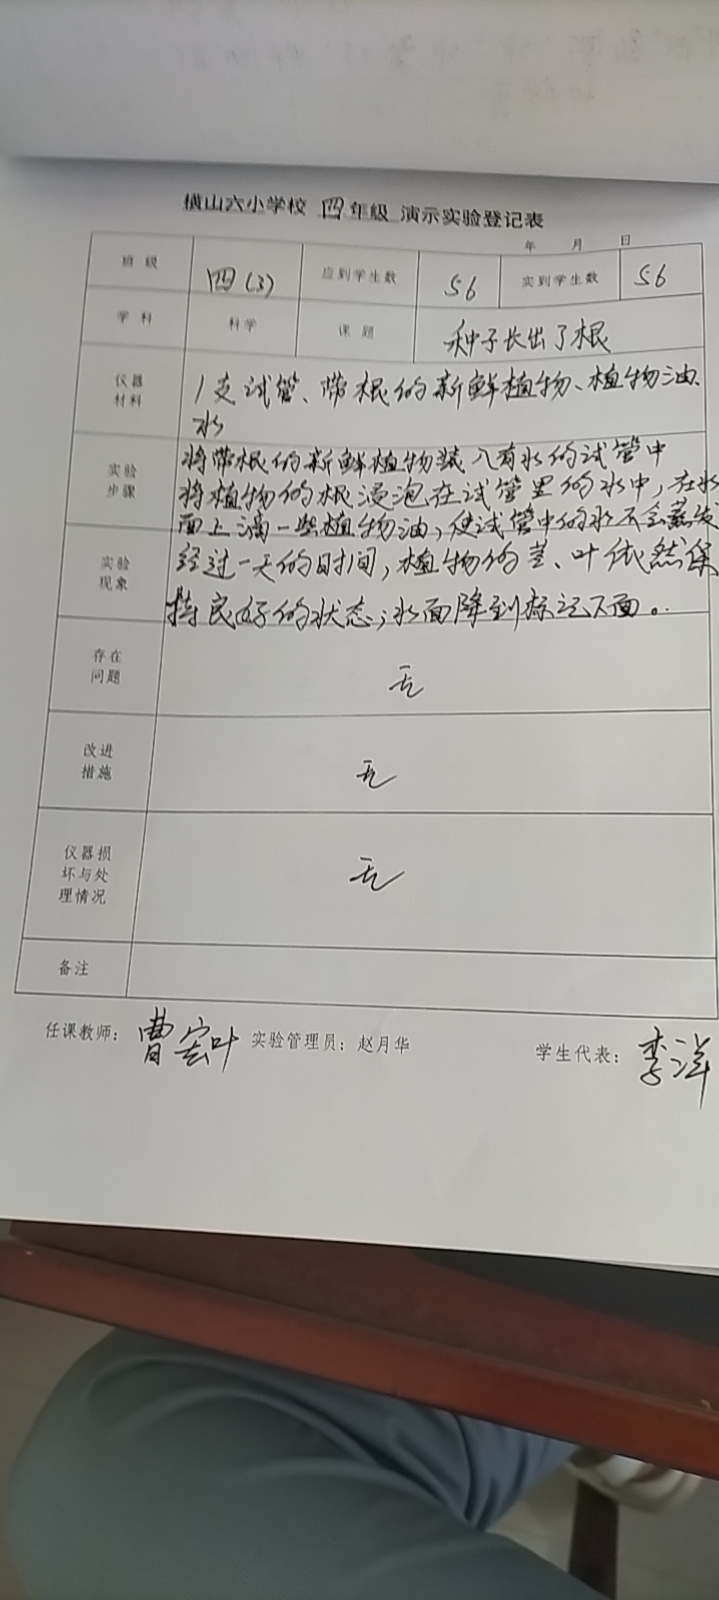 横山六小学校 四年级 演示实验登记表
年 月 日
班级 四(3) 应到学生数 56 实到学生数 56
学科 科学 课题 种子长出了根
仪器材料 1支试管、带根的新鲜植物、植物油、
水
实验步骤 将带根的新鲜植物装入有水的试管中
将植物的根浸泡在试管里的水中,在水
面上滴一些植物油,使试管中的水不会蒸发
实验现象 经过一天的时间,植物的茎、叶依然保
持良好的状态;水面降到标记下面。
存在问题 无
改进措施 无
仪器损坏与处理情况 无
备注
任课教师: 曹宏叶 实验管理员:赵月华 学生代表: 李洋